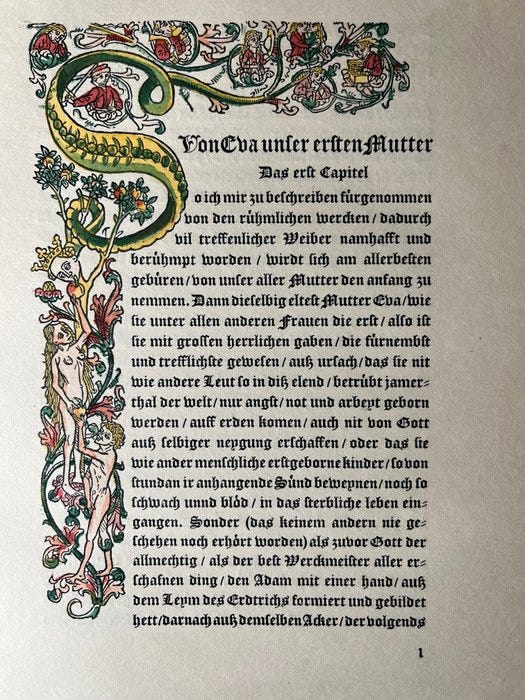 Von Eva unser ersten Mutter
Das erst Capitel
So ich mir zu beschreiben fürgenommen
von den rühmlichen wercken / dadurch
vil treffenlicher Weiber namhafft und
berühmpt worden / wirdt sich am allerbesten
gebüren / von unser aller Mutter den anfang zu
nemmen. Dann dieselbig eltest Mutter Eva / wie
sie unter allen anderen Frauen die erst / also ist
sie mit grossen herrlichen gaben / die fürnembst
und trefflichste gewesen / auß ursach / das sie nit
wie andere Leut so in diß elend / betrübt jamer⸗
thal der welt / nur angst / not und arbeyt geborn
werden / auff erden komen / auch nit von Gott
auß selbiger neygung erschaffen / oder das sie
wie ander menschliche erstgeborne kinder / so von
stundan ir anhangende Sünd beweynen / noch so
schwach unnd blöd / in das sterbliche leben ein⸗
gangen. Sonder (das keinem andern nie ge⸗
schehen noch erhört worden) als zuvor Gott der
allmechtig / als der best Werckmeister aller er⸗
schafnen ding / den Adam mit einer hand / auß
dem Leym des Erdtrichs formiert und gebildet
hett / darnach auß demselben Acker / der volgends
1